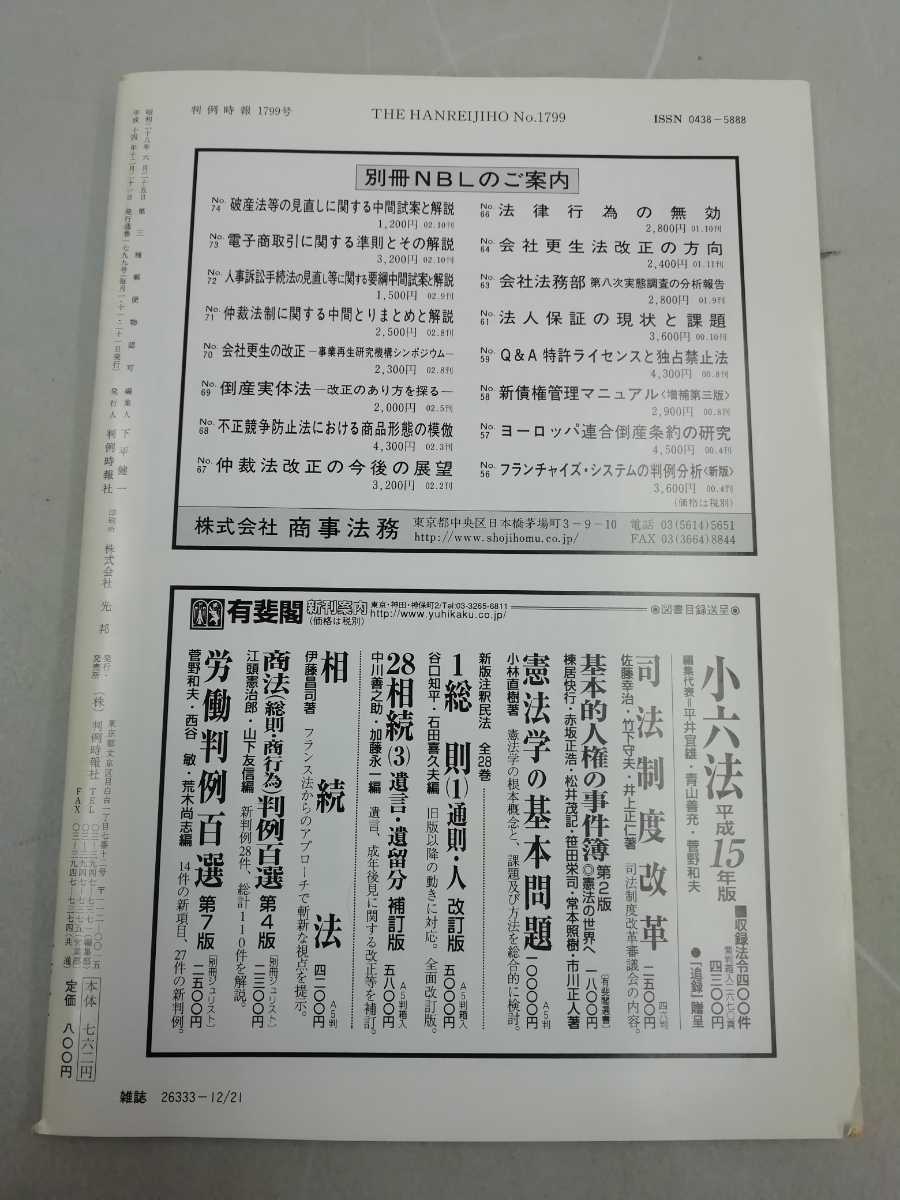 判例時報 1799号
THE HANREIJIHO No.1799
ISSN 0438-5888
別冊NBLのご案内
No.74 破産法等の見直しに関する中間試案と解説
1,200円 02.10刊
No.73 電子商取引に関する準則とその解説
3,200円 02.10刊
No.72 人事訴訟手続法の見直し等に関する要綱中間試案と解説
1,500円 02.9刊
No.71 仲裁法制に関する中間とりまとめと解説
2,500円 02.8刊
No.70 会社更生の改正―事業再生研究機構シンポジウム―
2,300円 02.8刊
No.69 倒産実体法―改正のあり方を探る―
2,000円 02.5刊
No.68 不正競争防止法における商品形態の模倣
4,300円 02.3刊
No.67 仲裁法改正の今後の展望
3,200円 02.2刊
No.66 法律行為の無効
2,800円 01.10刊
No.64 会社更生法改正の方向
2,400円 01.11刊
No.63 会社法務部 第八次実態調査の分析報告
2,800円 01.9刊
No.61 法人保証の現状と課題
3,600円 00.10刊
No.59 Q&A特許ライセンスと独占禁止法
4,300円 00.8刊
No.58 新債権管理マニュアル〈増補第三版〉
2,900円 00.8刊
No.57 ヨーロッパ連合倒産条約の研究
4,500円 00.4刊
No.56 フランチャイズ・システムの判例分析〈新版〉
3,600円 00.4刊
(価格は税別)
株式会社 商事法務
東京都中央区日本橋茅場町3-9-10
http://www.shojihomu.co.jp/
電話 03(5614)5651
FAX 03(3664)8844
有斐閣 新刊案内
(価格は税別)
東京・神田・神保町2/Tel:03-3265-6811
http://www.yuhikaku.co.jp/
◉図書目録送呈◉
小六法 平成15年版
編集代表=平井宜雄・青山善充・菅野和夫
■収録法令四〇〇件
四三〇〇円
●「追録」贈呈
司法制度改革
佐藤幸治・竹下守夫・井上正仁著
司法制度改革審議会の内容。
四六判
二五〇〇円
基本的人権の事件簿 第2版
◎憲法の世界へ
棟居快行・赤坂正浩・松井茂記・笹田栄司・常本照樹・市川正人著
[有斐閣選書]
一八〇〇円
憲法学の基本問題
小林直樹著
憲法学の根本概念と、課題及び方法を総合的に検討。
A5判
一〇〇〇〇円
新版注釈民法 全28巻
1 総則(1) 通則・人 改訂版
谷口知平・石田喜久夫編
旧版以降の動きに対応。全面改訂版。
A5判箱入
五〇〇〇円
28 相続(3) 遺言・遺留分 補訂版
中川善之助・加藤永一編
遺言、成年後見に関する改正等を補訂。
A5判箱入
五八〇〇円
相続法
伊藤昌司著
フランス法からのアプローチで斬新な視点を提示。
A5判
四二〇〇円
商法(総則・商行為)判例百選 第4版
江頭憲治郎・山下友信編
新判例28件、総計110件を解説。
[別冊ジュリスト]
二三〇〇円
労働判例百選 第7版
菅野和夫・西谷 敏・荒木尚志編
14件の新項目、27件の新判例。
[別冊ジュリスト]
二五〇〇円
昭和二十八年六月二十五日 第三種郵便物認可
平成十四年十二月二十一日 発行(通巻一七九九号)(毎月一・十一・二十一日発行)
編集人 下平健一
発行人 判例時報社
印刷所 株式会社 光邦
発行・発売所 (株)判例時報社
東京都文京区目白台一丁目七番十二号 〒一一二-〇〇一五
本体 七六二円
定価 八〇〇円
雑誌 26333-12/21